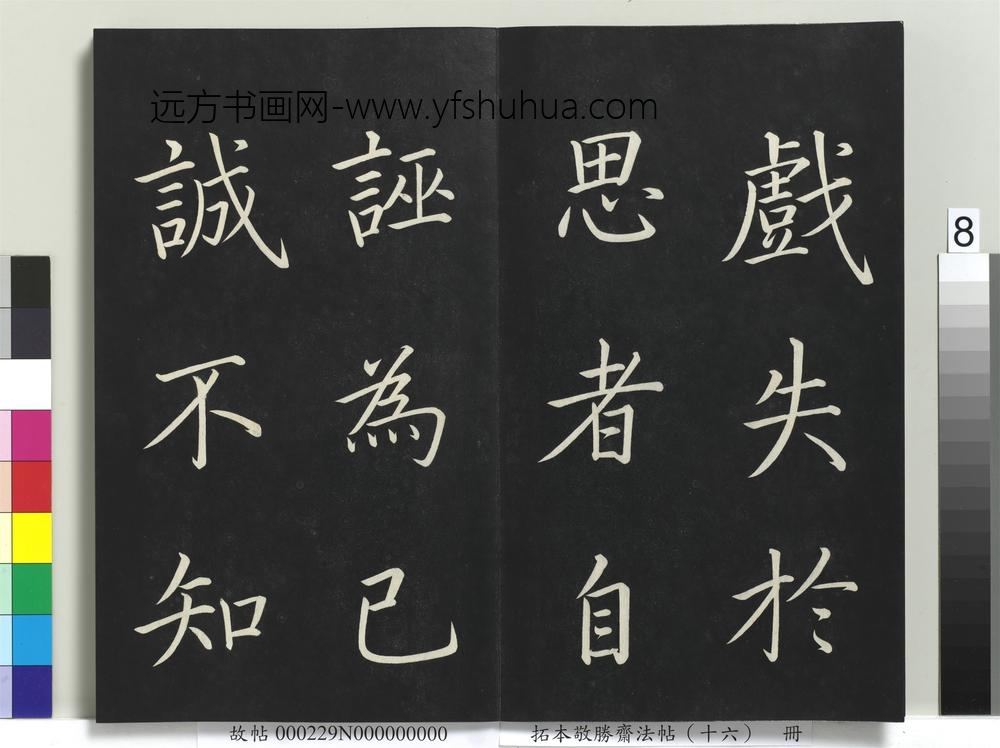 远方书画网-www.yfshuhua.com
戲失於
思者自
誣為已
誠不知
8
故帖 000229N000000000
拓本敬勝齋法帖（十六） 冊